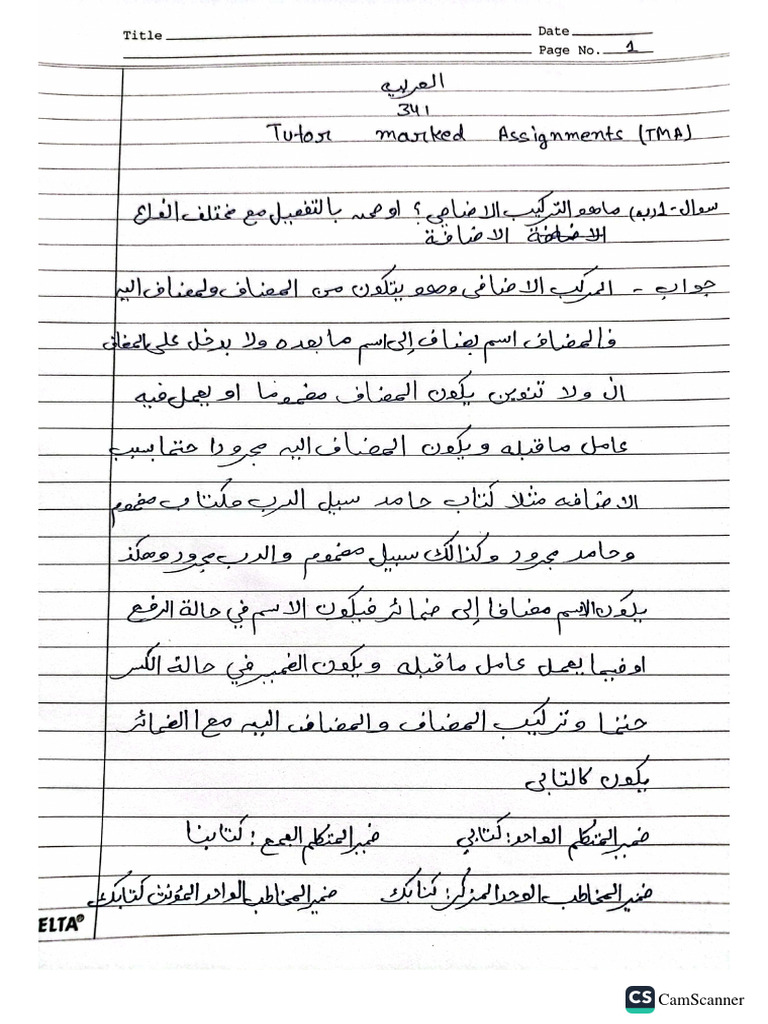 Title Date
Page No. 1
العربيه
341
Tutor marked Assignments (TMA)
سوال-1 (ب) ماهو التركيب الاضافي؟ اوضحه بالتفصيل مع مختلف انواع
الاضافة
جواب - المركب الاضافى وهو يتكون من المضاف ولمضاف اليه
فالمضاف اسم يضاف إلى اسم ما بعده ولا يدخل على المضاف
ال ولا تنوين يكون المضاف مضموما او يعمل فيه
عامل ماقبله ويكون المضاف اليه مجرودا حتما بسبب
الاضافه مثلا كتاب حامد سبيل الدرب فكتاب مضموم
وحامد مجرود وكذالك سبيل مضموم والدرب مجرود وهكذ
يكون الاسم مضافا إلى ضمائر فيكون الاسم في حالة الرفع
اوفيما يعمل عامل ماقبله ويكون الضمير في حالة الكسر
حتما وتركيب المضاف والمضاف اليه مع الضمائر
يكون كالتابى
ضمير المتكلم الواحد: كتابي ضمير المتكلم الجمع: كتابنا
ضمير المخاطب الوحد المزكر: كتابك ضمير المخاطب الواحد المؤنث كتابك
ELTA®
CS CamScanner